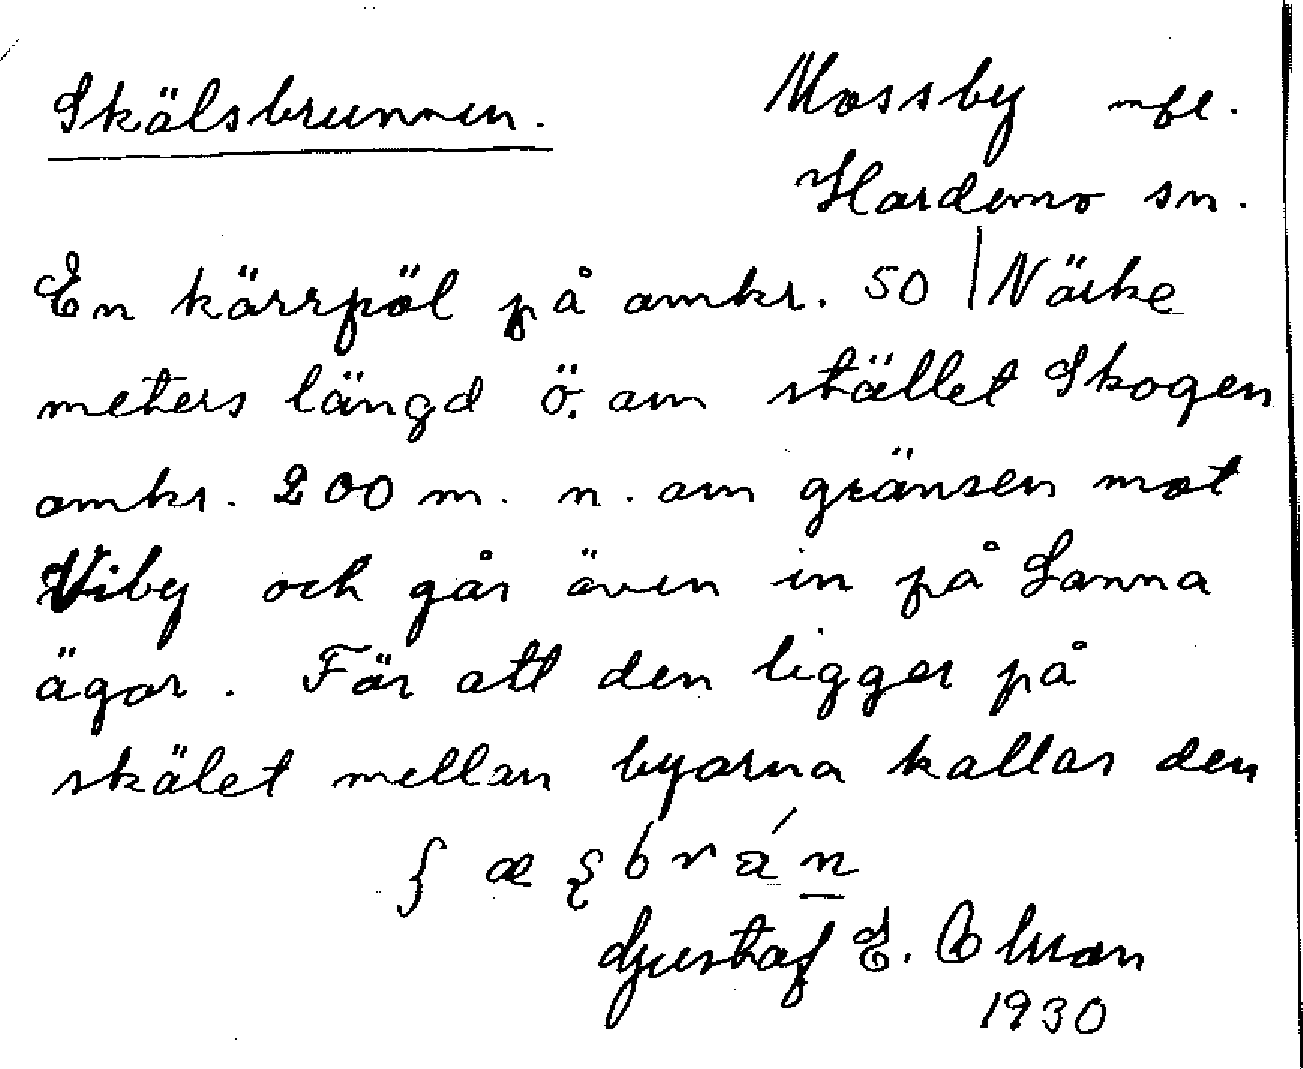 Skälsbrunnen.
Mossby mfl.
Hardemo sn.
Närke
En kärrpöl på omkr. 50
meters längd ö. om stället Skogen
omkr. 200 m. n. om gränsen mot
Viby och går även in på Sanna
ägor. För att den ligger på
skälet mellan byarna kallas den
Gustaf E.
1930